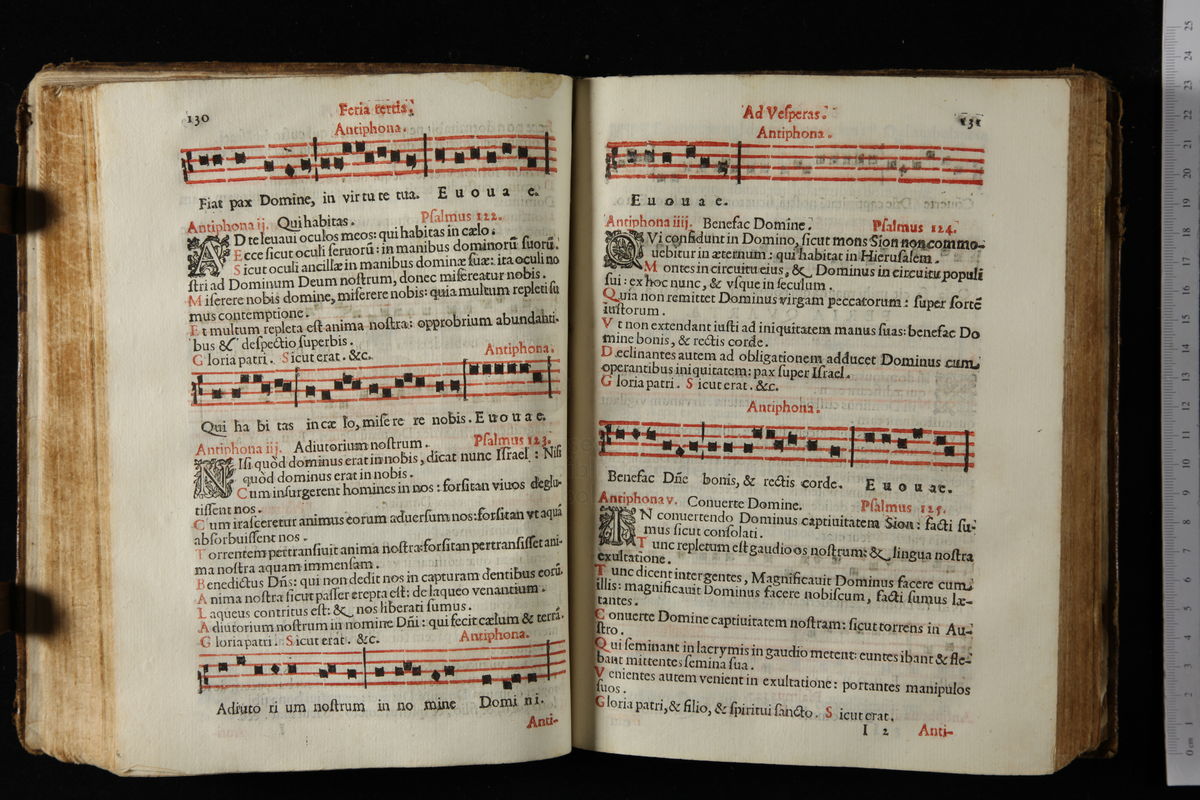 130
Feria tertia.
Antiphona.
Fiat pax Domine, in virtu te tua. E u o u a e.
Antiphona ij. Qui habitas. Psalmus 122.
AD te leuaui oculos meos: qui habitas in cælo.
Ecce sicut oculi seruorũ: in manibus dominorũ suorũ.
Sicut oculi ancillæ in manibus dominæ suæ: ita oculi no
stri ad Dominum Deum nostrum, donec misereatur nobis.
Miserere nobis domine, miserere nobis: quia multum repleti su
mus contemptione.
Et multum repleta est anima nostra: opprobrium abundanti-
bus & despectio superbis.
Gloria patri. Sicut erat. &c. Antiphona.
Qui ha bi tas in cæ lo, mise re re nobis. E u o u a e.
Antiphona iij. Adiutorium nostrum. Psalmus 123.
NIsi quòd dominus erat in nobis, dicat nunc Israel: Nisi
quòd dominus erat in nobis.
Cum insurgerent homines in nos: forsitan viuos deglu-
tissent nos.
Cum irasceretur animus eorum aduersum nos: forsitan vt aquã
absorbuissent nos.
Torrentem pertransiuit anima nostra: forsitan pertransisset ani-
ma nostra aquam immensam.
Benedictus Dñs: qui non dedit nos in capturam dentibus eorũ.
Anima nostra sicut passer erepta est: de laqueo venantium.
Laqueus contritus est: & nos liberati sumus.
Adiutorium nostrum in nomine Dñi: qui fecit cælum & terrã.
Gloria patri. Sicut erat. &c. Antiphona.
Adiuto ri um nostrum in no mine Domi ni.
Anti-
Ad Vesperas.
131
Antiphona.
E u o u a e.
Antiphona iiij. Benefac Domine. Psalmus 124.
QVi confidunt in Domino, sicut mons Sion non commo-
uebitur in æternum: qui habitat in Hierusalem.
Montes in circuitu eius, & Dominus in circuitu populi
sui: ex hoc nunc, & vsque in seculum.
Quia non remittet Dominus virgam peccatorum: super sortẽ
iustorum.
Vt non extendant iusti ad iniquitatem manus suas: benefac Do
mine bonis, & rectis corde.
Declinantes autem ad obligationem adducet Dominus cum
operantibus iniquitatem: pax super Israel.
Gloria patri. Sicut erat. &c.
Antiphona.
Benefac Dñe bonis, & rectis corde. E u o u ae.
Antiphona v. Conuerte Domine. Psalmus 125.
IN conuertendo Dominus captiuitatem Sion: facti su-
mus sicut consolati.
Tunc repletum est gaudio os nostrum: & lingua nostra
exultatione.
Tunc dicent inter gentes, Magnificauit Dominus facere cum
illis: magnificauit Dominus facere nobiscum, facti sumus læ-
tantes.
Conuerte Domine captiuitatem nostram: sicut torrens in Au-
stro.
Qui seminant in lacrymis in gaudio metent: euntes ibant & fle-
bant mittentes semina sua.
Venientes autem venient in exultatione: portantes manipulos
suos.
Gloria patri, & filio, & spiritui sancto. Sicut erat.
I 2 Anti-